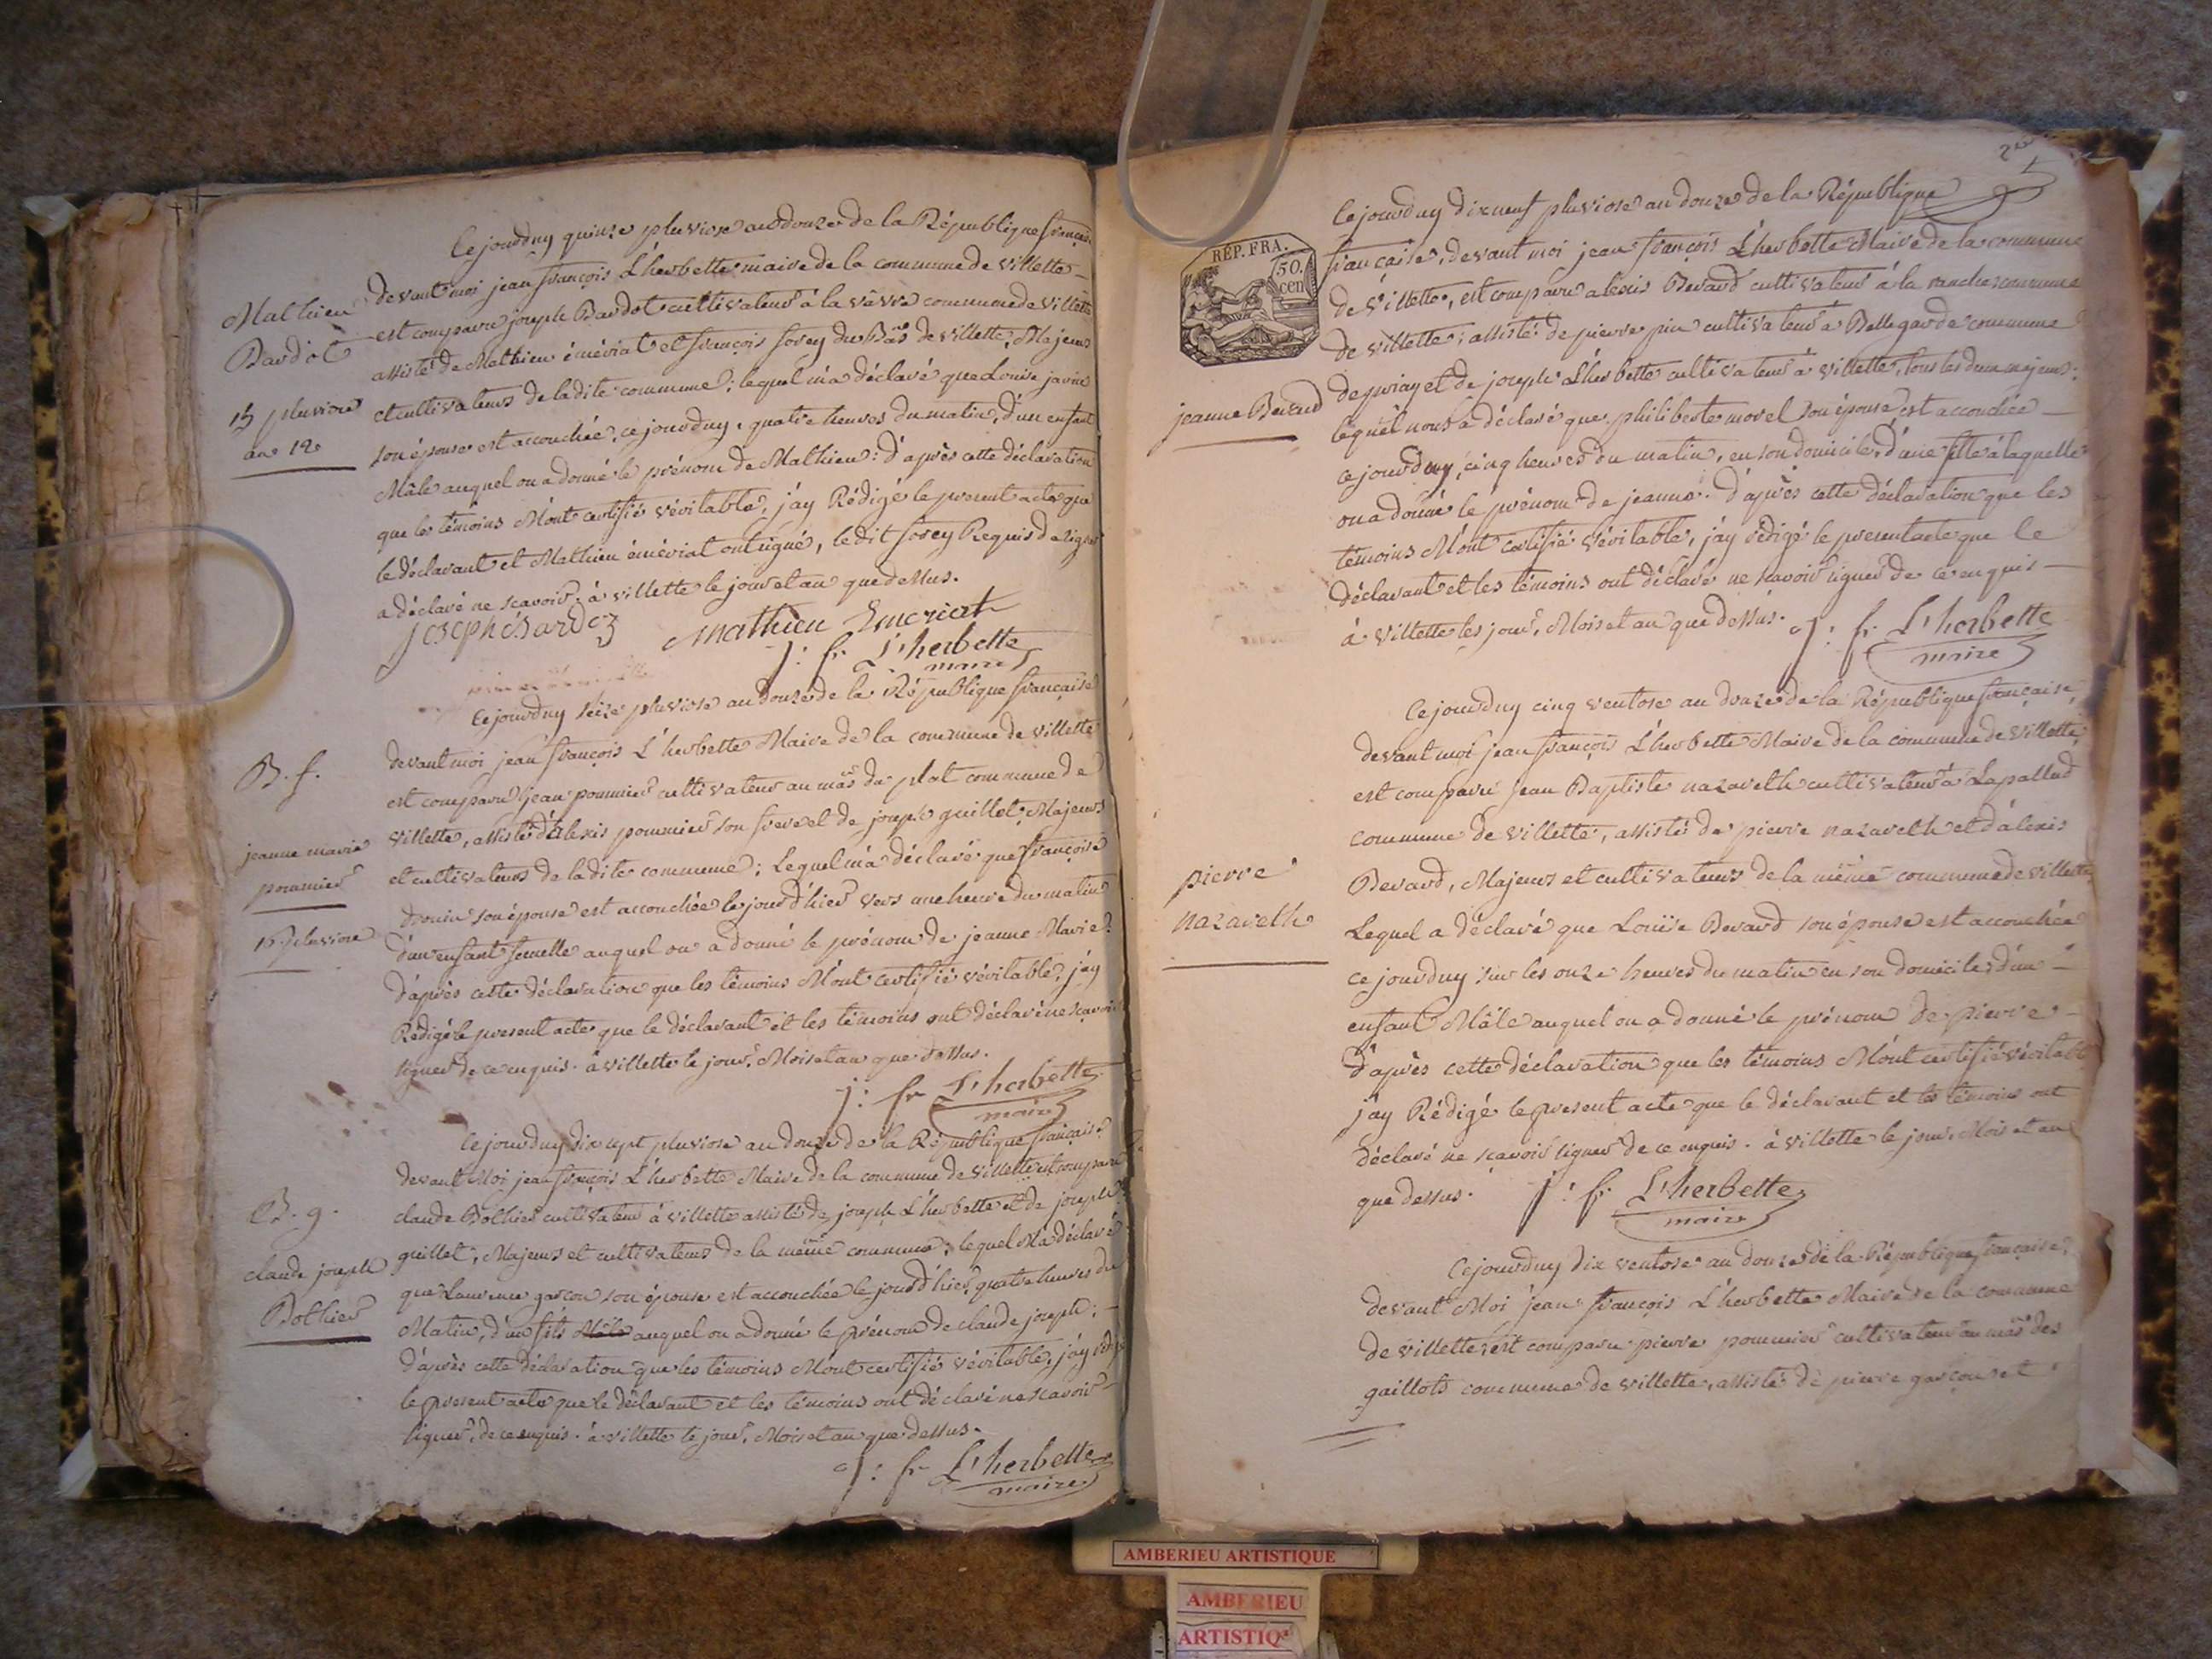 Mathieu
Bardot
15 pluviose
an 12
Cejourduy quinze pluviose an douze de la République française
devant moi jean françois L'herbette maire de la commune de villette
est comparu joseph Bardot cultivateur à la vavre commune de villette
assisté de Mathieu émériat et françois forey du Bas de villette, Majeurs
et cultivateurs de ladite commune; lequel m'a déclaré que Louise
son épouse est accouchée, cejourduy, quatre heures du matin, d'un enfant
Mâle auquel on a donné le prénom de Mathieu: d'après cette déclaration
que les témoins M'ont certifié véritable, j'ay Rédigé le present acte que
le déclarant et Mathieu émériat ont signé, ledit forey Requis de signer
a déclaré ne scavoir. à villette le jour et an que dessus.
joseph Bardoz Mathieu Emeriat
j: fr. L'herbette
maire
B. f.
jeanne marie
pommier
16 pluviose
Cejourduy seize pluviose an douze de la République française
devant moi jean françois L'herbette Maire de la commune de villette
est comparu jean pommier cultivateur au mas du plat commune de
villette, assisté d'alexis pommier son frere et de joseph guillet, Majeurs
et cultivateurs de ladite commune; Lequel m'a déclaré que françoise
drouin son épouse est accouchée le jour d'hier vers une heure du matin
d'un enfant femelle auquel on a donné le prénom de jeanne Marie:
d'après cette déclaration que les témoins M'ont certifié véritable, j'ay
Rédigé le present acte que le déclarant et les témoins ont déclaré ne scavoir
signer de ce enquis. à villette le jour, Mois et an que dessus.
j: fr. L'herbette
maire
B. g.
claude joseph
Bothier
Cejourduy dix sept pluviose an douze de la République française
devant Moi jean françois L'herbette Maire de la commune de villette est comparu
claude Bothier cultivateur à villette assisté de joseph L'herbette et de joseph
guillet, Majeurs et cultivateurs de la même commune; lequel M'a déclaré
que Laurence garcon son épouse est accouchée le jour d'hier, quatre heures du
Matin, d'un fils Mâle auquel on a donné le prénom de claude joseph;
d'après cette déclaration que les témoins M'ont certifié véritable, j'ay rédigé
le present acte que le déclarant et les témoins ont déclaré ne scavoir
signer, de ce enquis. à villette le jour, Mois et an que dessus.
j: fr. L'herbette
maire
RÉP. FRA.
50.
cen
jeanne Berard
Cejourduy dix neuf pluviose an douze de la République
française, devant moi jean françois L'herbette Maire de la commune
de villette, est comparu alexis Berard cultivateur à la ranche commune
de villette; assisté de pierre pin cultivateur à Bellegarde commune
de priay et de joseph L'herbette cultivateur à villette, tous les deux majeurs:
lequel nous a déclaré que philiberte morel son épouse est accouchée
cejourduy, cinq heures du matin, en son domicile, d'une fille à laquelle
on a donné le prénom de jeanne. d'après cette déclaration que les
témoins M'ont certifié véritable, j'ay rédigé le present acte que le
déclarant et les témoins ont déclaré ne scavoir signer de ce enquis
à villette les jour, Mois et an que dessus.
j: fr. L'herbette
maire
pierre
nazareth
Cejourduy cinq ventose an douze de la République française,
devant moi jean françois L'herbette Maire de la commune de villette,
est comparu jean Baptiste nazareth cultivateur à Lapallud
commune de villette, assisté de pierre nazareth et d'alexis
Berard, Majeurs et cultivateurs de la même commune de villette
Lequel a déclaré que Louise Berard son épouse est accouchée
ce jourduy sur les onze heures du matin en son domicile, d'un
enfant Mâle auquel on a donné le prénom de pierre
d'après cette déclaration que les témoins M'ont certifié véritable
j'ay Rédigé le present acte que le déclarant et les témoins ont
déclaré ne scavoir signer de ce enquis. à villette le jour, Mois et an
que dessus. j: fr. L'herbette
maire
Cejourduy dix ventose an douze de la République française,
devant Moi jean françois L'herbette Maire de la commune
de villette, est comparu pierre pommier cultivateur au mas des
gaillots commune de villette, assisté de pierre garçon et
AMBERIEU ARTISTIQUE
AMBERIEU
ARTISTIQ